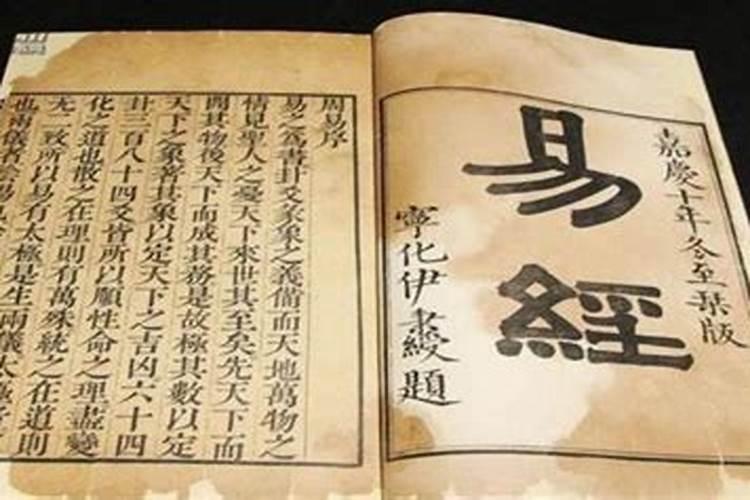 嘉慶十年冬至栞版
易經
寧化伊秉綬題
周易序
易之爲書卦爻彖象之義備而天地萬物之
情見聖人之憂天下來世其至矣先天下而
開其物後天下而成其務是故極其數以定
天下之象著其象以定天下之吉凶六十四
卦三百八十四爻皆所以順性命之理盡變
化之道也散之在理則有萬殊統之在道則
无二致所以易有太極是生兩儀太極者
也兩儀者陰陽也